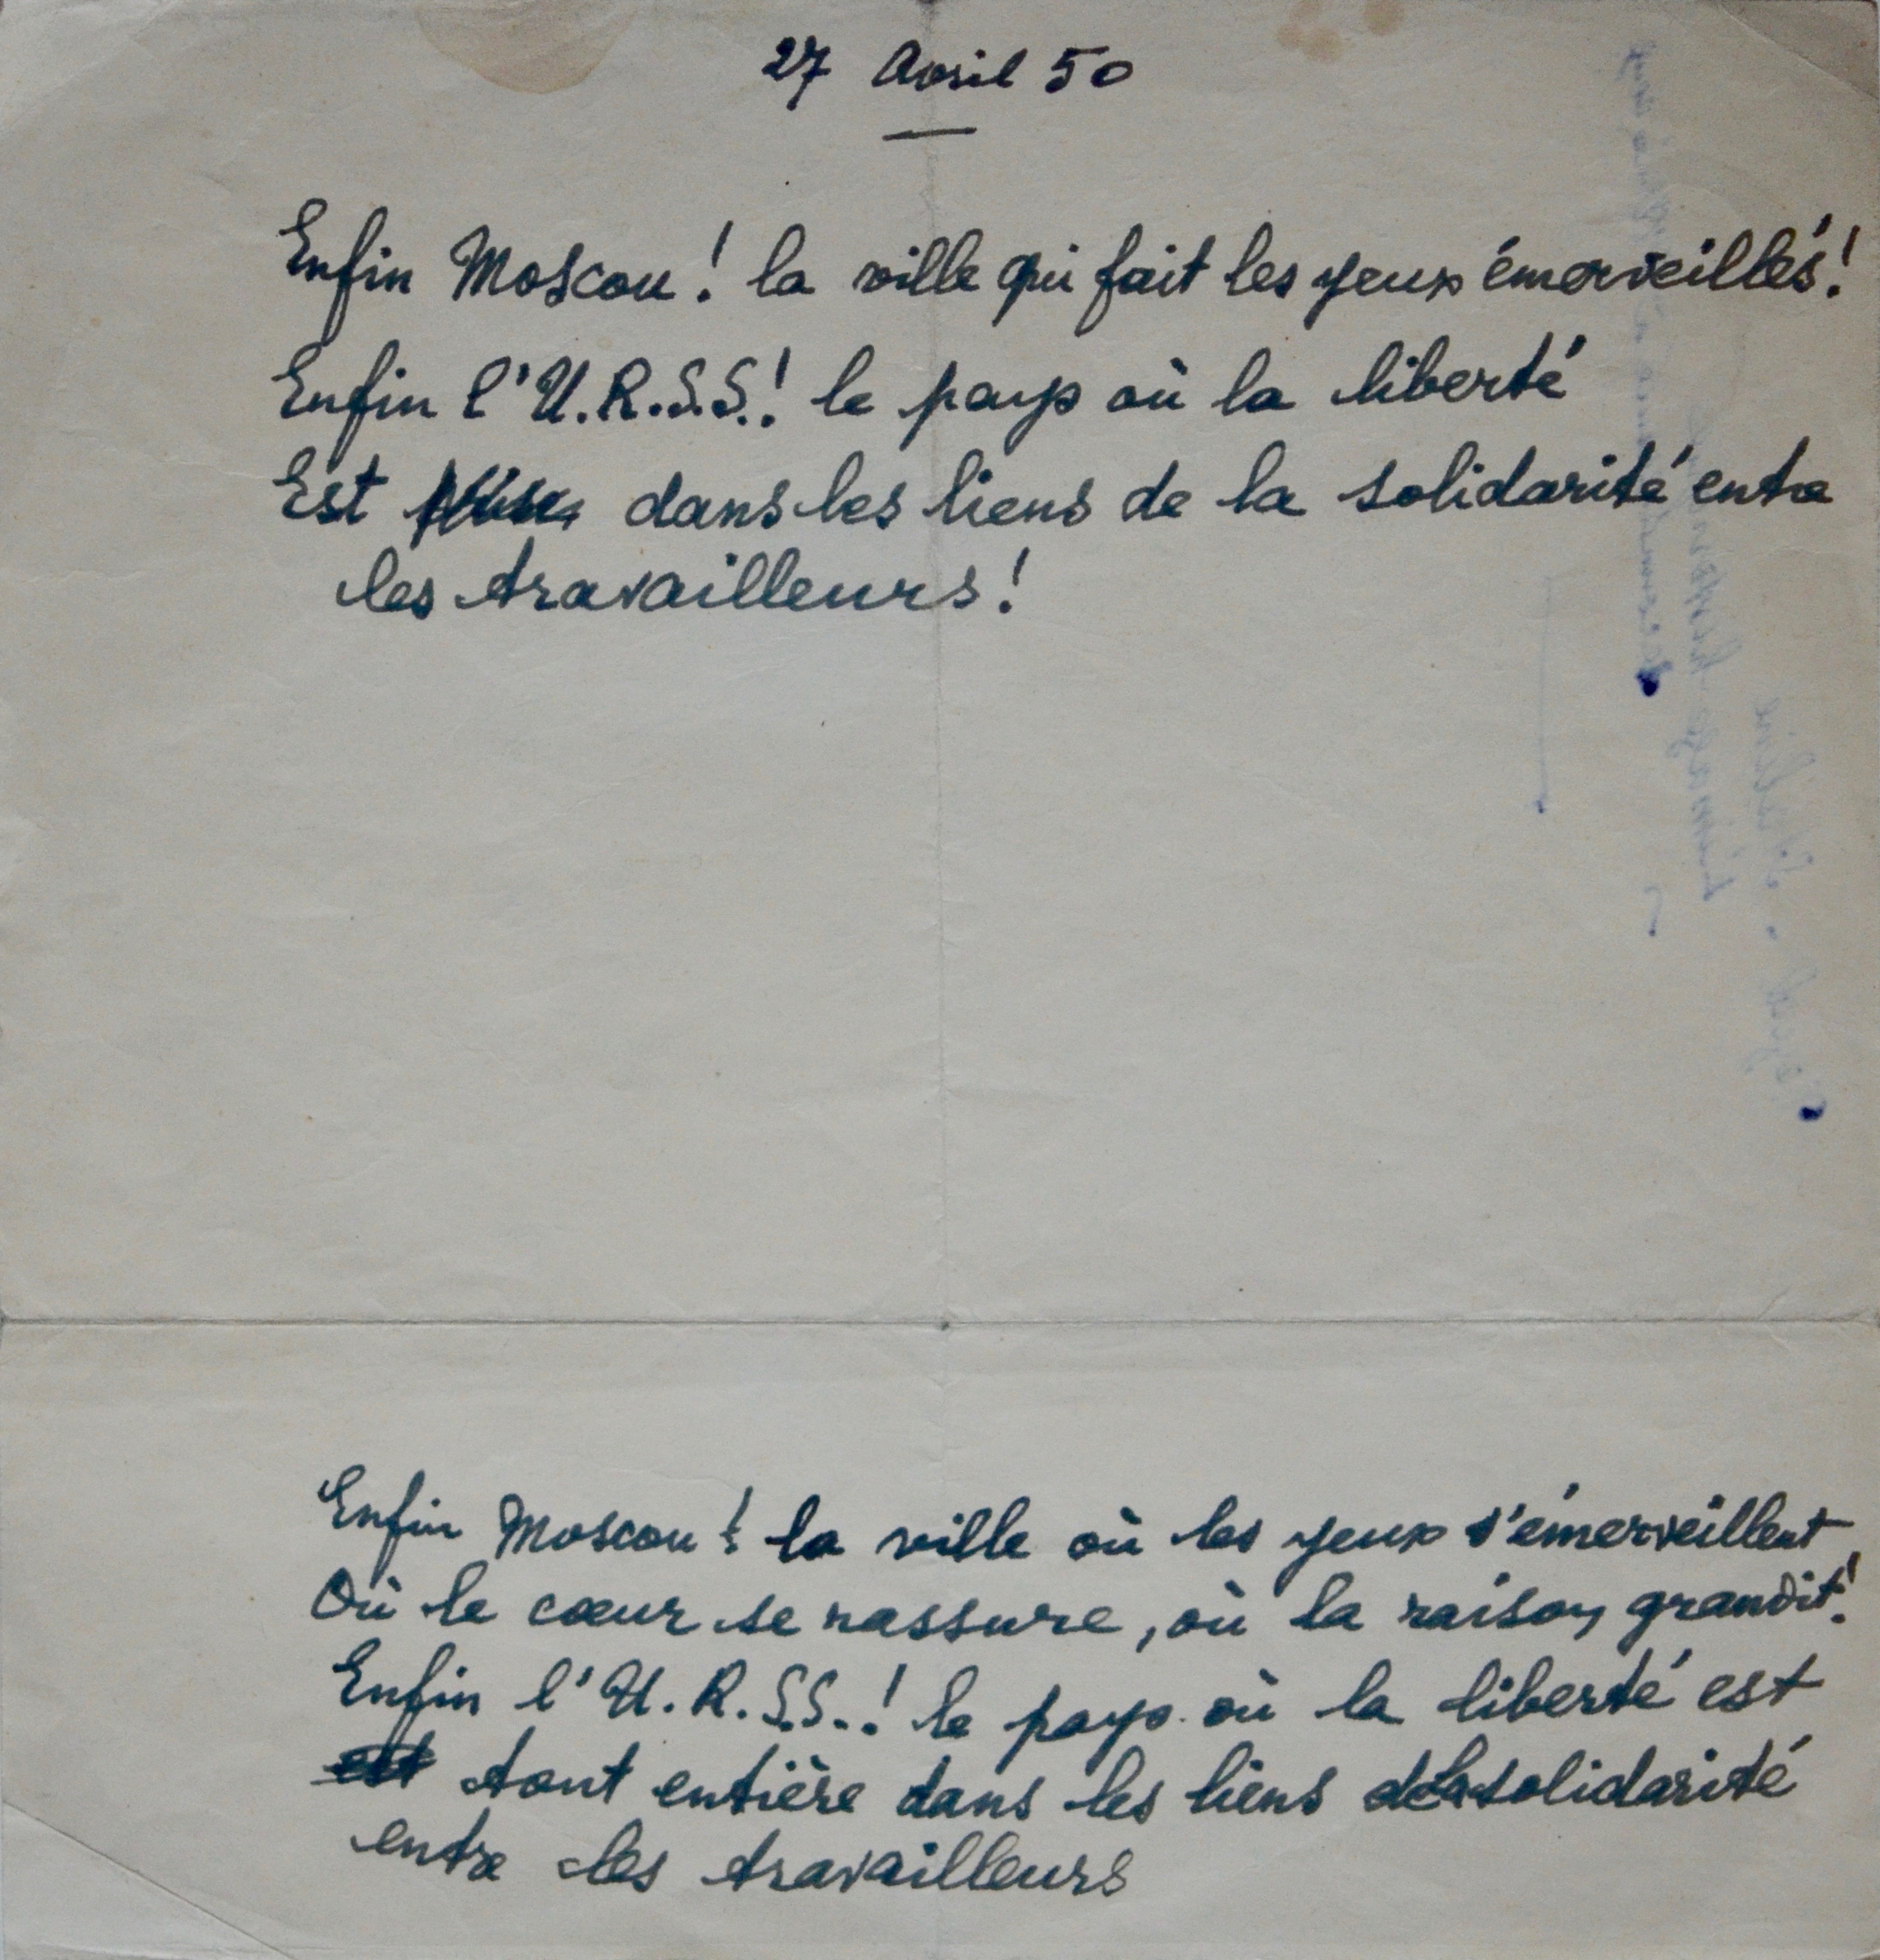 27 Avril 50
Enfin Moscou ! la ville qui fait les yeux émerveillés !
Enfin l'U.R.S.S. ! le pays où la liberté
Est dans les liens de la solidarité entre
les travailleurs !
Enfin Moscou ! la ville où les yeux s'émerveillent,
Où le cœur se rassure, où la raison grandit !
Enfin l'U.R.S.S. ! le pays où la liberté est
est tout entière dans les liens de la solidarité
entre les travailleurs